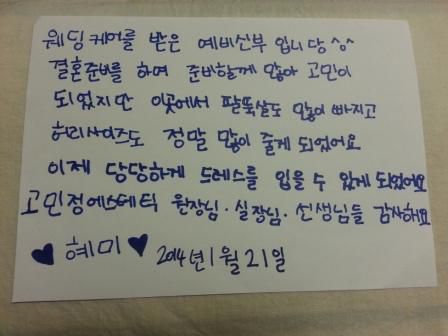 웨딩케어를 받은 예비신부 입니당^^
결혼준비를 하며 준비할께 많아 고민이
되었지만 이곳에서 팔뚝살도 많이 빠지고
허리사이즈도 정말 많이 줄게 되었어요
이제 당당하게 드레스를 입을 수 있게 되었어요
고민정에스테틱 원장님·실장님·선생님들 감사해요
♥혜미♥ 2014년 1월 21일